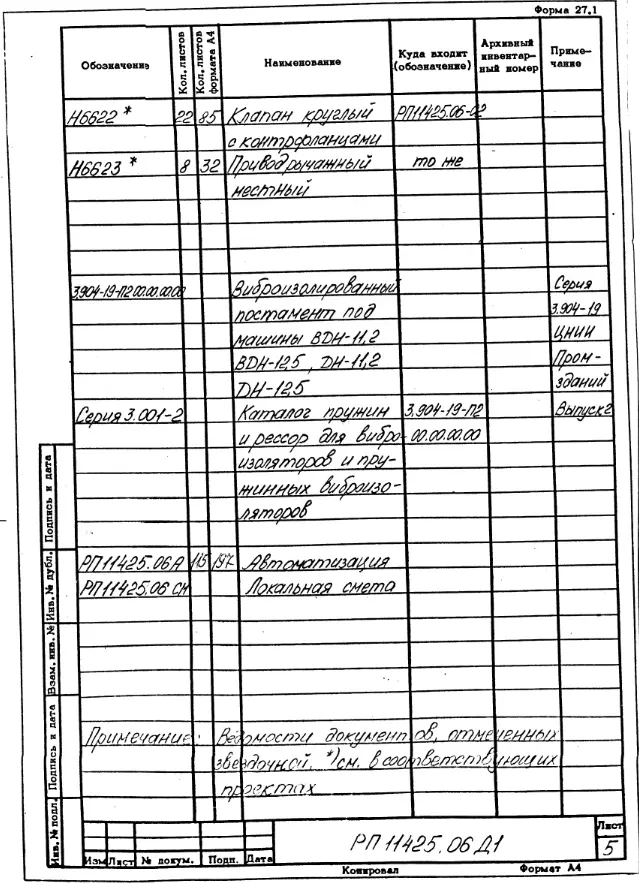 Форма 27.1
Обозначение
Кол. листов
Кол. листов формата А4
Наименование
Куда входит (обозначение)
Архивный инвентарный номер
Примечание
Н6622 * 22 85 Клапан круглый РП11425.06-02
с контрфланцами
Н6623 * 8 32 Привод рычажный то же
местный
3.904-19-П2.00.00.00.00 Виброизолированный Серия
постамент под 3.904-19
машины ВДН-11,2 ЦНИИ
ВДН-12,5, ДН-11,2 Пром-
ДН-12,5 зданий
Серия 3.001-2 Каталог пружин 3.904-19-П2 Выпуск 2
и рессор для вибро- 00.00.00.00
изоляторов и пру-
жинных виброизо-
ляторов
РП11425.06А 115 197 Автоматизация
РП11425.06 СМ Локальная смета
Примечание: Ведомости документов, отмеченных
звездочкой, *) см. в соответствующих
проектах
Инв. № подл. Подпись и дата Взам. инв. № Инв. № дубл. Подпись и дата
РП 11425.06 Д1
Лист
5
Изм Лист № докум. Подп. Дата
Копировал Формат А4